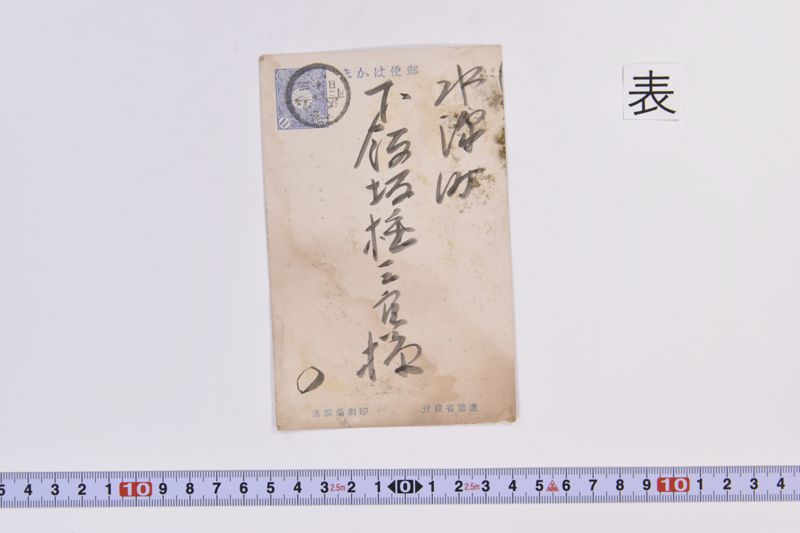 表
郵便はか
水澤町
下飯坂権三宜様
逓信省發行
印刷局製造
5 4 3 2 1 10 9 8 7 6 5 4 3 2.5m 2 1 0 1 2 2.5m 3 4 5 6 7 8 9 10 1 2 3 4